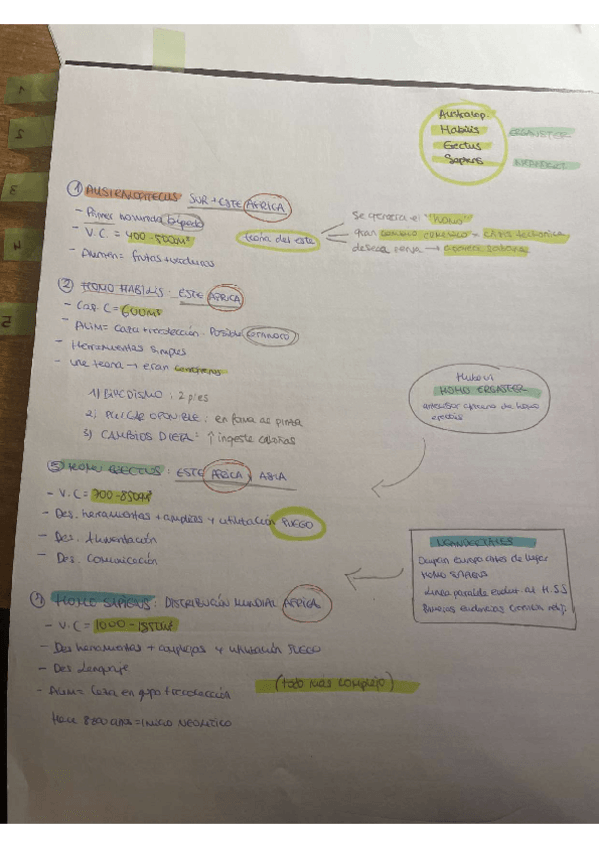 Australop.
Habilis
Erectus
Sapiens
ERGASTER
① AUSTRALOPITECUS SUR + ESTE AFRICA
- Primer homínido bípedo
- V.C. = 400-500ml
- Alimen = frutas +
teoria del este
Se genera el "homo"
Gran cambio climático -
descca →
② HOMO HABILIS: ESTE AFRICA
- Cap. C = 600ml
- ALIM = Caza + recolección. Posible
- Herramientas simples
- Une teoria → eran
1) BIPEDISMO: 2 pies
2) PULGAR OPONIBLE: en forma de pinza
3) CAMBIOS DIETA: ↑ ingesta calorías
HOMO ERGASTER
antecesor africano de homo
erectus
③ HOMO ERECTUS: ESTE AFRICA y ASIA
- V.C = 700-850ml
- Des. herramientas + amplias y utilización FUEGO
- Des. Alimentación
- Des. Comunicación
NEANDERTALES
Ocupan Europa antes de llegar
HOMO SAPIENS
Línea paralela evolut. al H.S.S
Primeras evidencias
④ HOMO SAPIENS: DISTRIBUCIÓN MUNDIAL AFRICA
- V.C = 1000-1850ml
- Des herramientas + complejas y utilización FUEGO
- Des Lenguaje
- ALIM = Caza en grupo + recolección
(todo más complejo)
Hace 8200 años = INICIO NEOLITICO